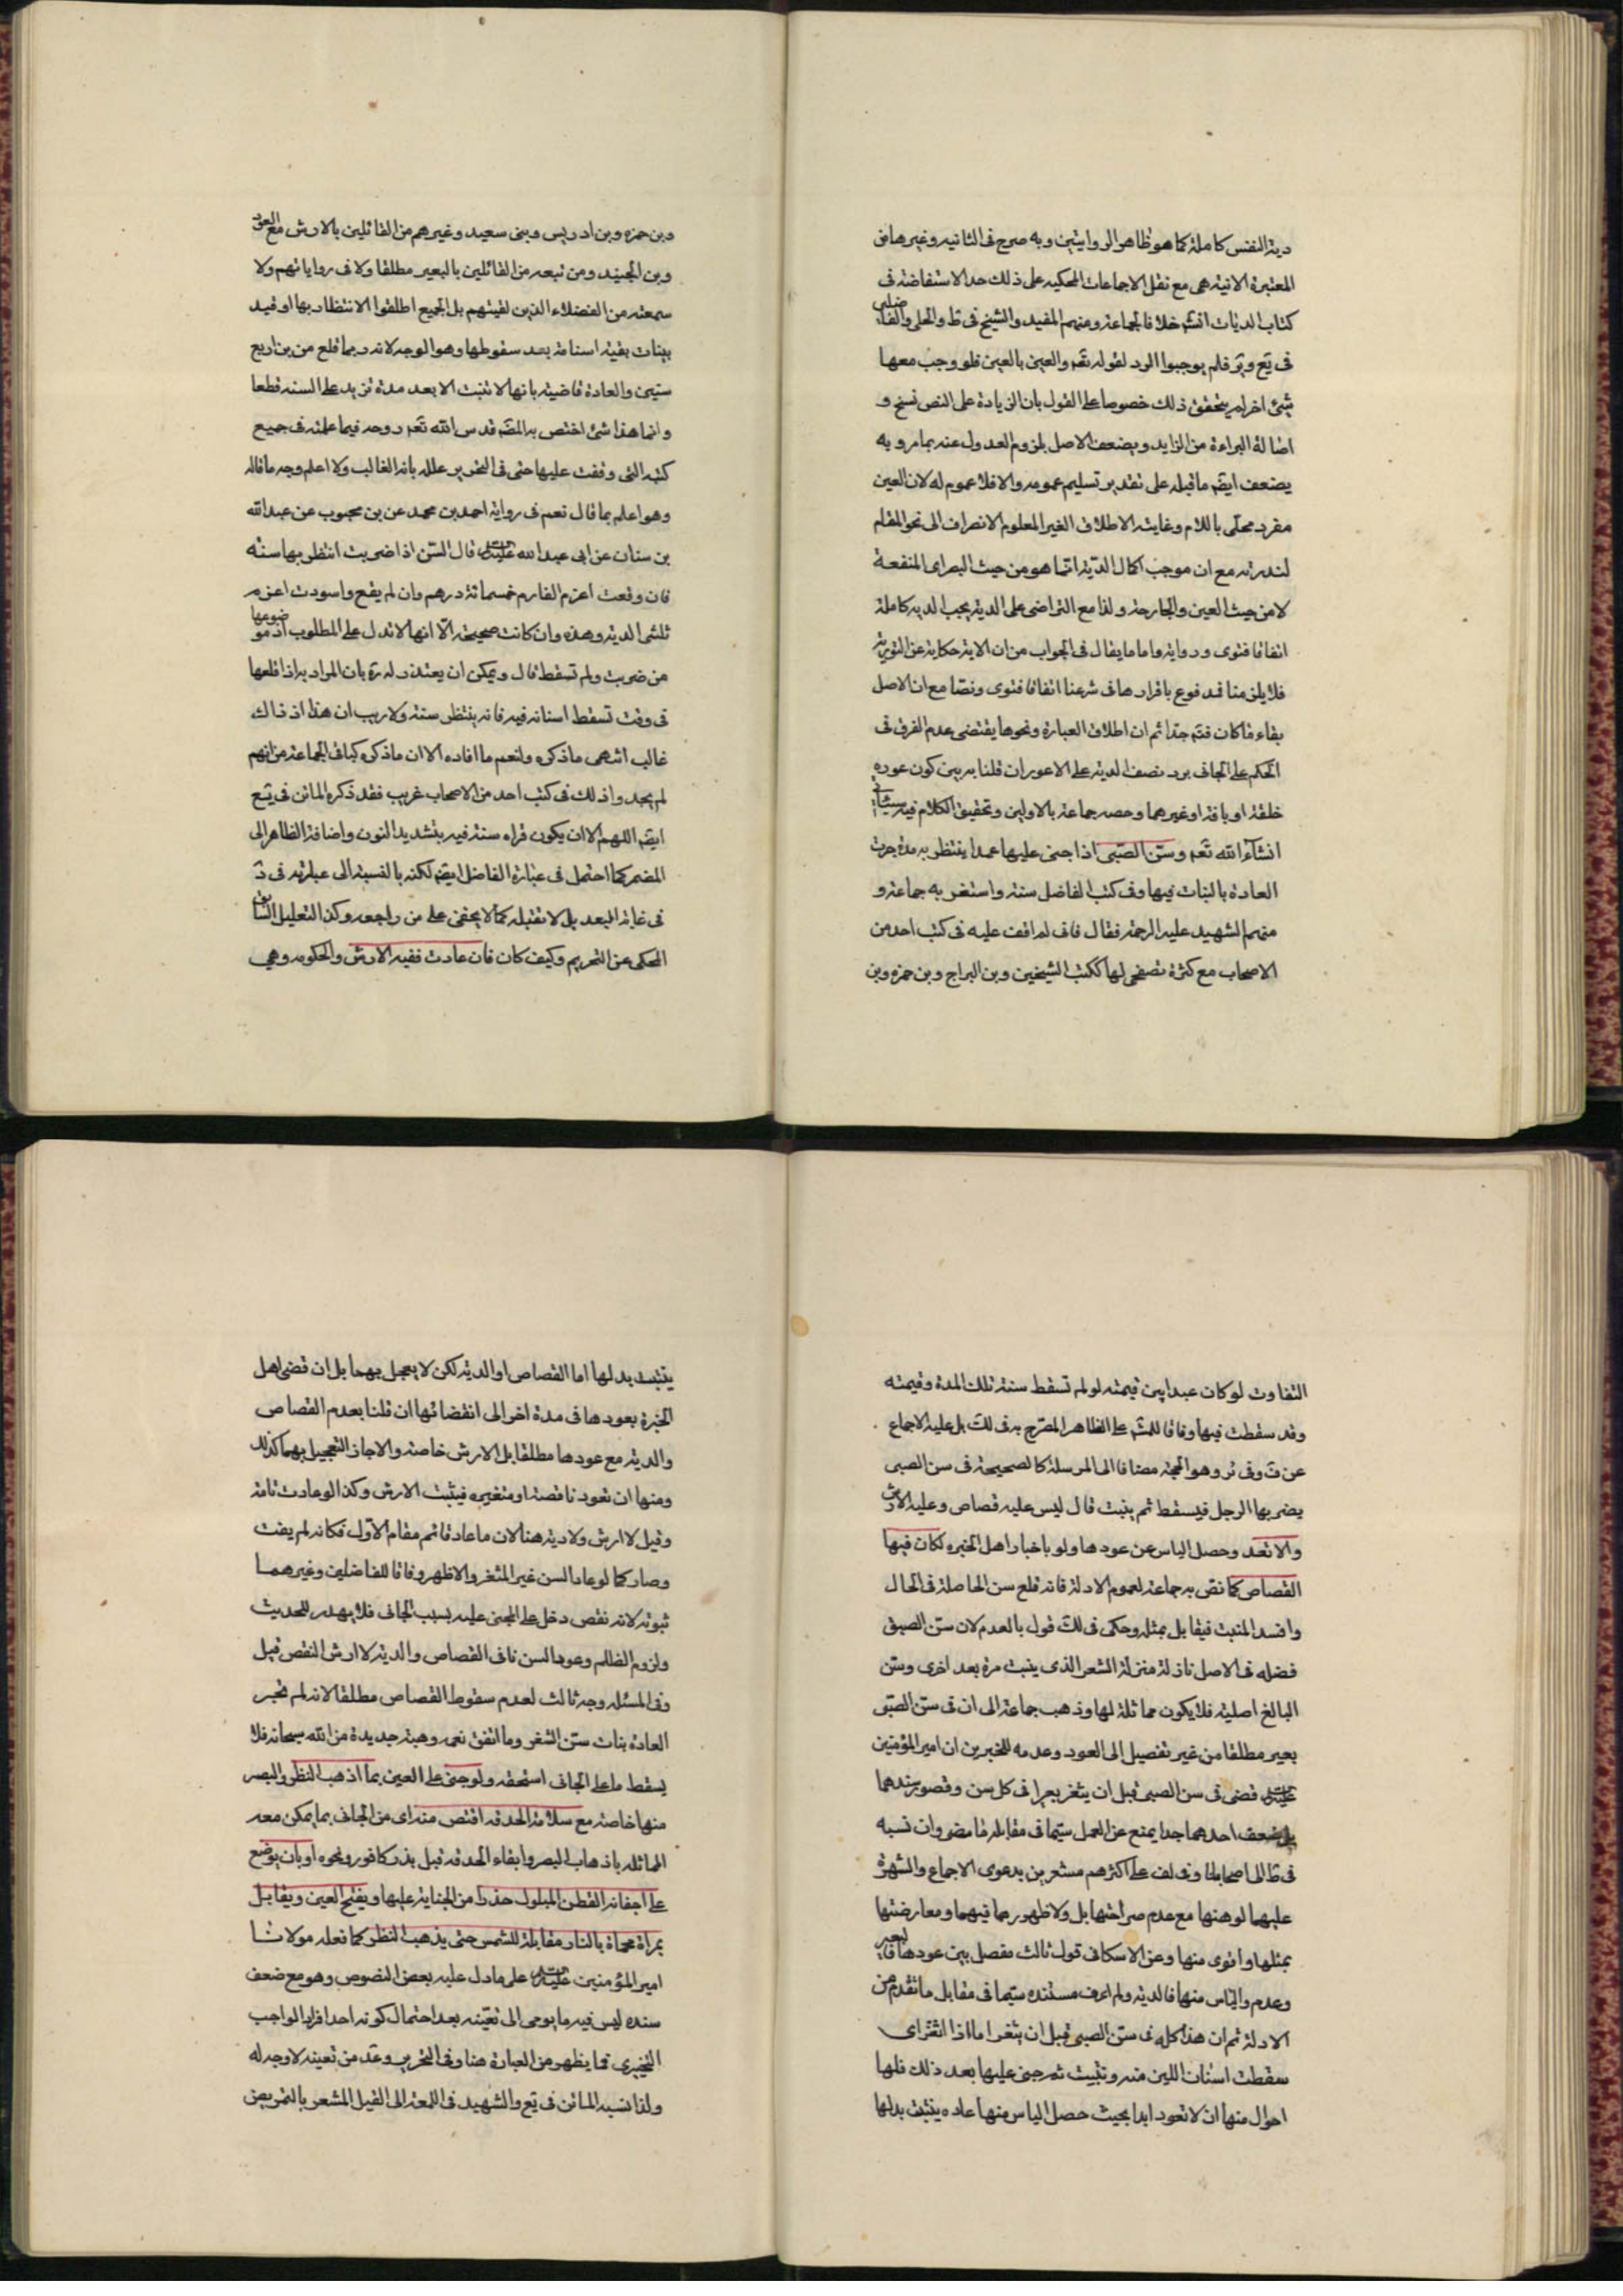 دية النفس كاملة كما هو ظاهر الروايتين وبه صرح فى الثانيه وغيرها من
المعتبرة الاتية هى مع نقل الاجماعات المحكيه على ذلك حد الاستفاضة فى
كتاب الديات انشـ خلافا لجماعة ومنهم المفيد والشيخ فى ط والحلى والفاضلين
فى يع وير فلم يوجبوا الرد لقوله تعـ والعين بالعين فلو وجب معها
شئ اخر لم يتحقق ذلك خصوصا على القول بان الزيادة على النص نسخ و
اصالة البراءة من الزايد ويضعف الاصل بلزوم العدول عنه بما مر وبه
يضعف ايضـ ما قبله على تقدير تسليم عمومه والا فلا عموم له لان العين
مفرد محلى باللام وغايته الاطلاق الغير المعلوم الانصراف الى نحو المقام
لندرته مع ان موجب اكمال الدية انما هو من حيث البصر اى المنفعة
لا من حيث العين والجارحة ولذا مع التراضى على الدية يجب الديه كاملة
اتفاقا فتوى ورواية واما ما يقال فى الجواب من ان الاية حكاية عن التورية
فلا يلزمنا فمدفوع باقرارها فى شرعنا اتفاقا فتوى ونصا مع ان الاصل
بقاء ما كان فتـ جدا ثم ان اطلاق العبارة ونحوها يقتضى عدم الفرق فى
الحكم على الجانى برد نصف الدية على الاعور ان قلنا به بين كون عوره
خلقة او بافة او غيرهما وحصه جماعة بالاولين وتحقيق الكلام فيه سياتى
انشآء الله تعـ وسن الصبى اذا جنى عليها عمدا ينتظر به مدة جرت
العادة بالنبات فيها وفى كتب الفاضل سنة واستغربه جماعة و
منهم الشهيد عليه الرحمة فقال فانى لم اقف عليه فى كتب احد من
الاصحاب مع كثرة تصفحى لها ككتب الشيخين وبن البراج وبن حمزه وبن
وبن حمزه وبن ادريس وبنى سعيد وغيرهم من القائلين بالارش مع العود
وبن الجنيد ومن تبعه من القائلين بالبعير مطلقا ولا فى رواياتهم ولا
سمعته من الفضلاء الذين لقيتهم بل الجميع اطلقوا الانتظار بها او قيد
بنبات بقية اسنانه بعد سقوطها وهو الوجه لانه ربما قلع من بن اربع
سنين والعادة قاضية بانها لا تنبت الا بعد مدة تزيد على السنه قطعا
وانما هذا شئ اختص به المصـ قدس الله تعـ روحه فيما علمته فى جميع
كتبه التى وقفت عليها حتى فى التحرير علله بانه الغالب ولا اعلم وجه ما قاله
وهو اعلم بما قال نعم فى رواية احمد بن محمد عن بن محبوب عن عبدالله
بن سنان عن ابى عبد الله عليه قال السن اذا ضربت انتظر بها سنة
فان وقعت اغرم الغارم خمسمائة درهم وان لم يقع واسودت اغرم
ثلثى الدية وهذه وان كانت صحيحة الا انها لا تدل على المطلوب اذ موضوعها
من ضربت ولم تسقط قال ويمكن ان يعتذر له ره بان المراد به اذا قلعها
فى وقت تسقط اسنانه فيه فانه ينتظر سنة ولا ريب ان هذا اذ ذاك
غالب انتهى ما ذكره ولنعم ما افاده الا ان ما ذكره كباقى الجماعة من انهم
لم يجدوا ذلك فى كتب احد من الاصحاب غريب فقد ذكره الماتن فى يع
ايضـ اللهم الا ان يكون قراه سنه فيه بتشديد النون واضافة الظاهر الى
المضمر كما احتمل فى عبارة الفاضل ايضـ لكنه بالنسبة الى عبارته فى
فى غاية البعد بل لا تقبله كما لا يخفى على من راجعه وكذا التعليل السابق
المحكى عن التحريم وكيف كان فان عادت ففيه الارش والحكومه وهى
التفاوت لو كان عبدا بين قيمته لو لم تسقط سنه تلك المدة وقيمته
وقد سقطت فيها وفاقا للمشـ على الظاهر المصرح به فى لك بل عليه الاجماع
عن ف وفى ئر وهو الحجة مضافا الى المرسلة كالصحيحة فى سن الصبى
يضربها الرجل فيسقط ثم ينبت قال ليس عليه قصاص وعليه الارش
والا تعد وحصل الياس عن عودها ولو باخبار اهل الخبره كان فيها
القصاص كما نص به جماعة لعموم الادلة فانه قلع سن الحاصلة فى الحال
وافسد المنبت فيقابل بمثله وحكى فى لك قول بالعدم لان سن الصبى
فضله فى الاصل نازلة منزلة الشعر الذى ينبت مرة بعد اخرى وسن
البالغ اصلية فلا يكون مماثلة لها وذهب جماعة الى ان فى سن الصبى
بعير مطلقا من غير تفصيل الى العود وعدمه للخبرين ان امير المؤمنين
عليه قضى فى سن الصبى قبل ان يثغر بعيرا فى كل سن وقصور سندهما
بل ضعف احدهما جدا يمنع عن العمل سيما فى مقابلة ما مضى وان نسبه
فى ط الى اصحابنا وفى لف على اكثرهم مشعرين بدعوى الاجماع والشهرة
عليهما لوهنها مع عدم صراحتها بل ولا ظهورهما فيهما ومعارضتها
بمثلها واقوى منها وعن الاسكافى قول ثالث مفصل بين عودها فالبعير
وعدم والياس منها فالدية ولم اعرف مستنده سيما فى مقابل ما تقدم من
الادلة ثم ان هذا كله فى سن الصبى قبل ان يثغر اما اذا اثغر اى
سقطت اسنان اللبن منه ونبتت ثم جنى عليها بعد ذلك فلها
احوال منها ان لا تعود ابدا بحيث حصل الياس منها عاده يثبت بدلها
يثبت بدلها اما القصاص او الدية لكن لا يعجل بهما بل ان قضى اهل
الخبرة بعودها فى مدة اخر الى انقضائها ان قلنا بعدم القصاص
والدية مع عودها مطلقا بل الارش خاصة والا جاز التعجيل بهما كذلك
ومنها ان تعود ناقصة او متغيره فيثبت الارش وكذا لو عادت تامة
وقيل لا ارش ولا دية هنا لان ما عاد قائم مقام الاول فكانه لم يفت
وصار كما لو عاد السن غير المثغر والاظهر وفاقا للفاضلين وغيرهما
ثبوته لانه نقص دخل على المجنى عليه بسبب الجانى فلا يهدر للحديث
ولزوم الظلم وعود السن نافى القصاص والدية لا ارش النقص قبل
وفى المسئله وجه ثالث لعدم سقوط القصاص مطلقا لانه لم تجبر
العادة بنبات سن الثغر وما اتفق نعمه وهبة جديدة من الله سبحانه فلا
يسقط ما على الجانى استحقه ولو جنى على العين بما اذهب النظر والبصر
منها خاصة مع سلامة الحدقه اقتص منه اى من الجانى بما يمكن معه
المماثله باذهاب البصر وابقاء الحدقه قيل بذر كافور ونحوه او بان يوضع
على اجفانه القطن المبلول حذرا من الجناية عليها ويفتح العين ويقابل
بمراة محماة بالنار مقابلة للشمس حتى يذهب النظر كما فعله مولانا
امير المؤمنين عليه على ما دل عليه بعض النصوص وهو مع ضعف
سنده ليس فيه ما يومى الى تعينه بعد احتمال كونه احد افراد الواجب
التخييرى فما يظهر من العبارة هنا وفى التحرير وعد من تعينه لا وجه له
ولذا نسبه الماتن فى يع والشهيد فى اللمعة الى القيل المشعر بالتمريض